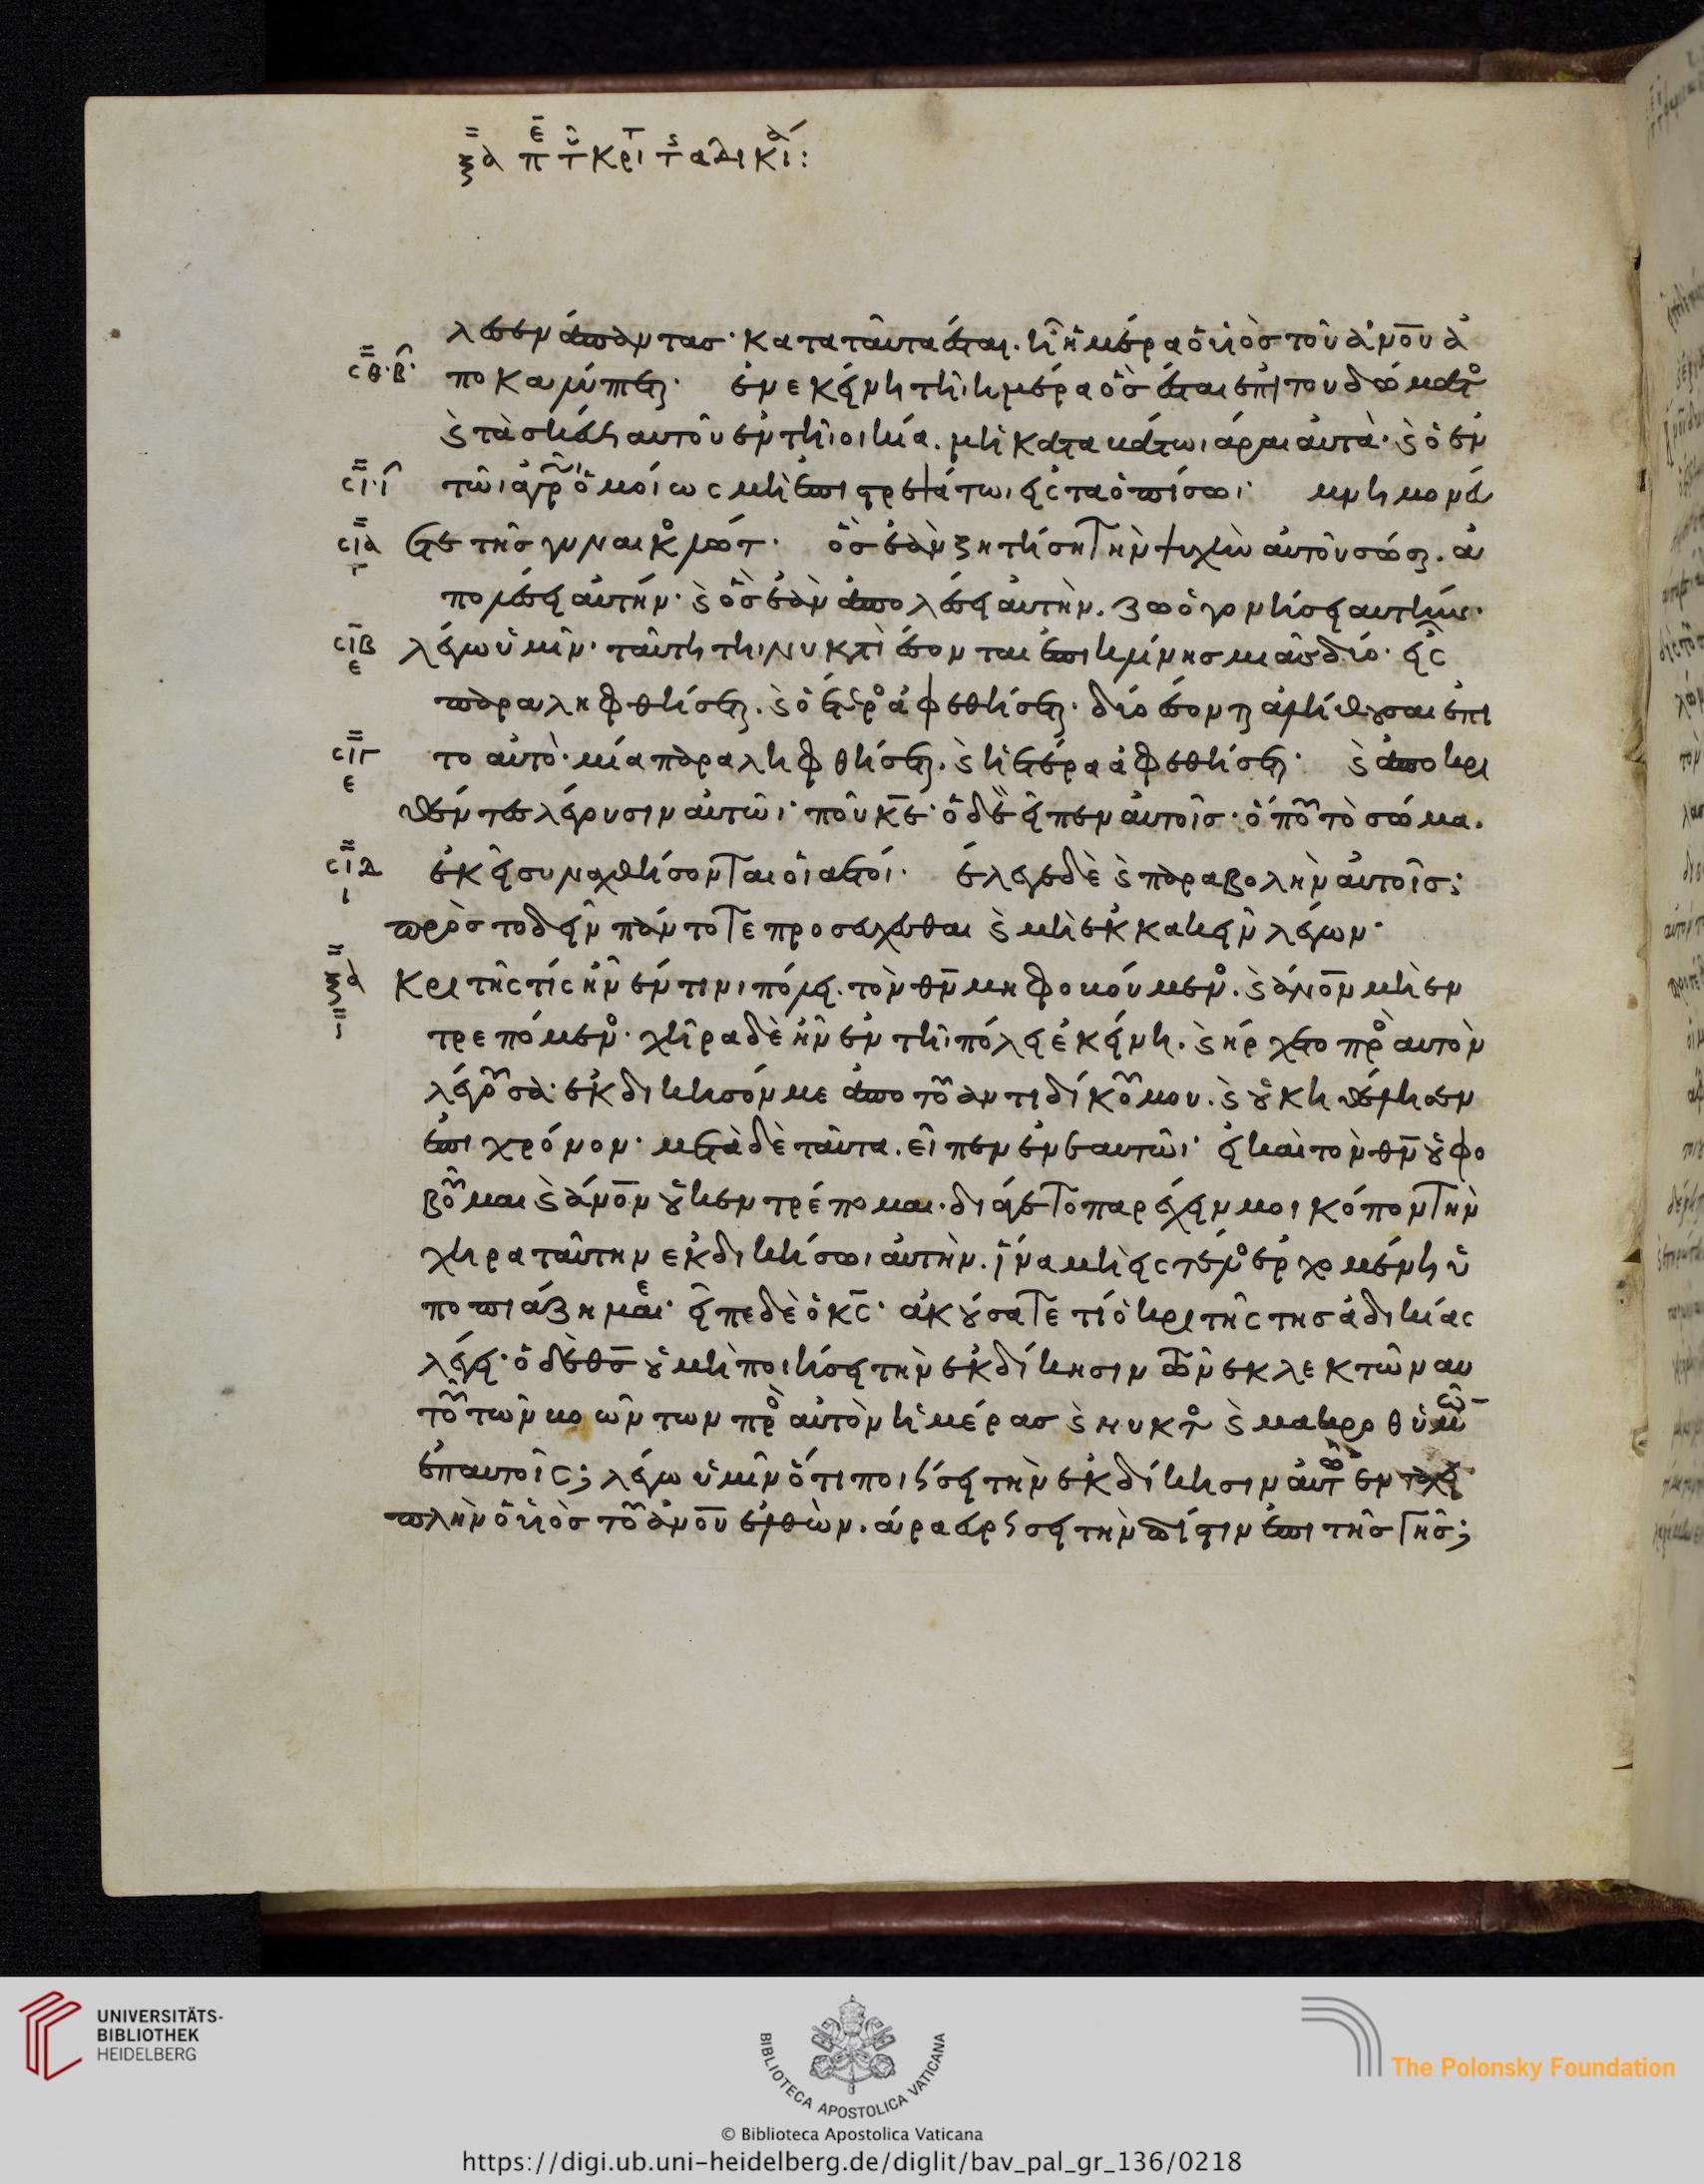 ξα πε του κριτ τς αδικια:
λεσεν ἅπαντας· κατα ταῦτα ἔσται. ἧ ἡμέρα ὁ υἱὸς τοῦ ἀν̅ου ἀ
σ̅θ̅·β· ποκαλύπτεται· ἐν εκείνη τῆι ἡμέρα ὃς ἔσται ἐπι του δώματος
καὶ τὰ σκέυη αυτοῦ ἐν τῆι οικία. μὴ καταβάτωι ἆραι ἀυτά· καὶ ὁ ἐν
σ̅ι̅·ι τῶι ἀγρῶ ὁμοίως μὴ ἐπιστρεψάτωι εἰς τα ὀπίσωι· μνημονέυ
σ̅ι̅α̅ ετε τῆς γυναικος λώτ· ὃς ἐὰν ζητήση τὴν ψυχὴν ἀυτοῦ σῶσαι. ἀ
γ πολέσει ἀυτήν· καὶ ὃς ἐὰν ἀπολέσει ἀυτὴν. ζωὀγονήσει αυτήν·
σ̅ι̅β̅ λέγω ὑμῖν· ταύτη τηι νυκτὶ ἔσονται ἐπι κλίνης μιᾶς δύο· εἷς
ε παραληφθήσεται. καὶ ὁ ἕτερος ἀφεθήσεται· δύο ἔσονται ἀλήθουσαι ἐπι
σ̅ι̅γ̅ το αὐτὸ· μία παραληφθήσεται. καὶ ἡ ἑτέρα ἀφεθήσεται· καὶ ἀποκρι
ε θέντες λέγουσιν αὐτῶι· ποῦ κ̅ε̅· ὁ δὲ εἶπεν ἀυτοῖς· ὅπου τὸ σῶμα.
σ̅ι̅δ̅ ἐκεῖ συναχθήσονται οἱ αετοί· ἔλεγε δὲ καὶ παραβολὴν ἀυτοῖς:
ι πρὸς το δεῖν πάντοτε προσέυχεσθαι καὶ μὴ ἐκκακεῖν λέγων·
ξ̅α̅ κριτὴς τίς ἦν ἔν τινι πόλει. τὸν θ̅ν̅ μη φοβούμενος. καὶ ἀν̅ον μὴ εν
τρεπόμενος· χήρα δὲ ἦν ἐν τῆι πόλει ἐκείνη. καὶ ἤρχετο προς αυτὸν
λέγουσα· ἐκδίκησόν με ἀπο τοῦ ἀντιδίκου μου. καὶ οὐκ ἠθέλησεν
ἐπι χρόνον· μετὰ δὲ ταῦτα. εἶπεν ἐν ἑαυτῶι· εἰ καὶ τὸν θ̅ν̅ οὐ φο
βοῦμαι καὶ ἀν̅ον οὐκ εντρέπομαι. διά γε τὸ παρέχειν μοι κόπον τὴν
χηρα ταύτην εκδικήσωι ἀυτὴν. ἵνα μὴ εις τέλος ἐρχομένη ὑ
ποπιάζη με· εἶπε δὲ ὁ κ̅ς̅· ἀκούσατε τί ὁ κριτὴς της ἀδικίας
λέγει· ὁ δὲ θ̅ς̅ οὐ μὴ ποιήσει τὴν ἐκδίκησιν τῶν εκλεκτῶν αυ
τοῦ τῶν βοώντων προς αὐτὸν ἡμέρας καὶ νυκτος καὶ μακροθυμῶν
ἐπ αυτοῖς; λέγω ὑμῖν ὅτι ποιήσει τὴν ἐκδίκησιν ἀυτῶν εν τάχει
πλὴν ὁ υἱὸς τοῦ ἀν̅ου ἐλθὼν. ἆρα ευρήσει τὴν πίστιν ἐπι τῆς γῆς;
UNIVERSITÄTS-
BIBLIOTHEK
HEIDELBERG
BIBLIOTECA APOSTOLICA VATICANA
The Polonsky Foundation
© Biblioteca Apostolica Vaticana
https://digi.ub.uni-heidelberg.de/diglit/bav_pal_gr_136/0218